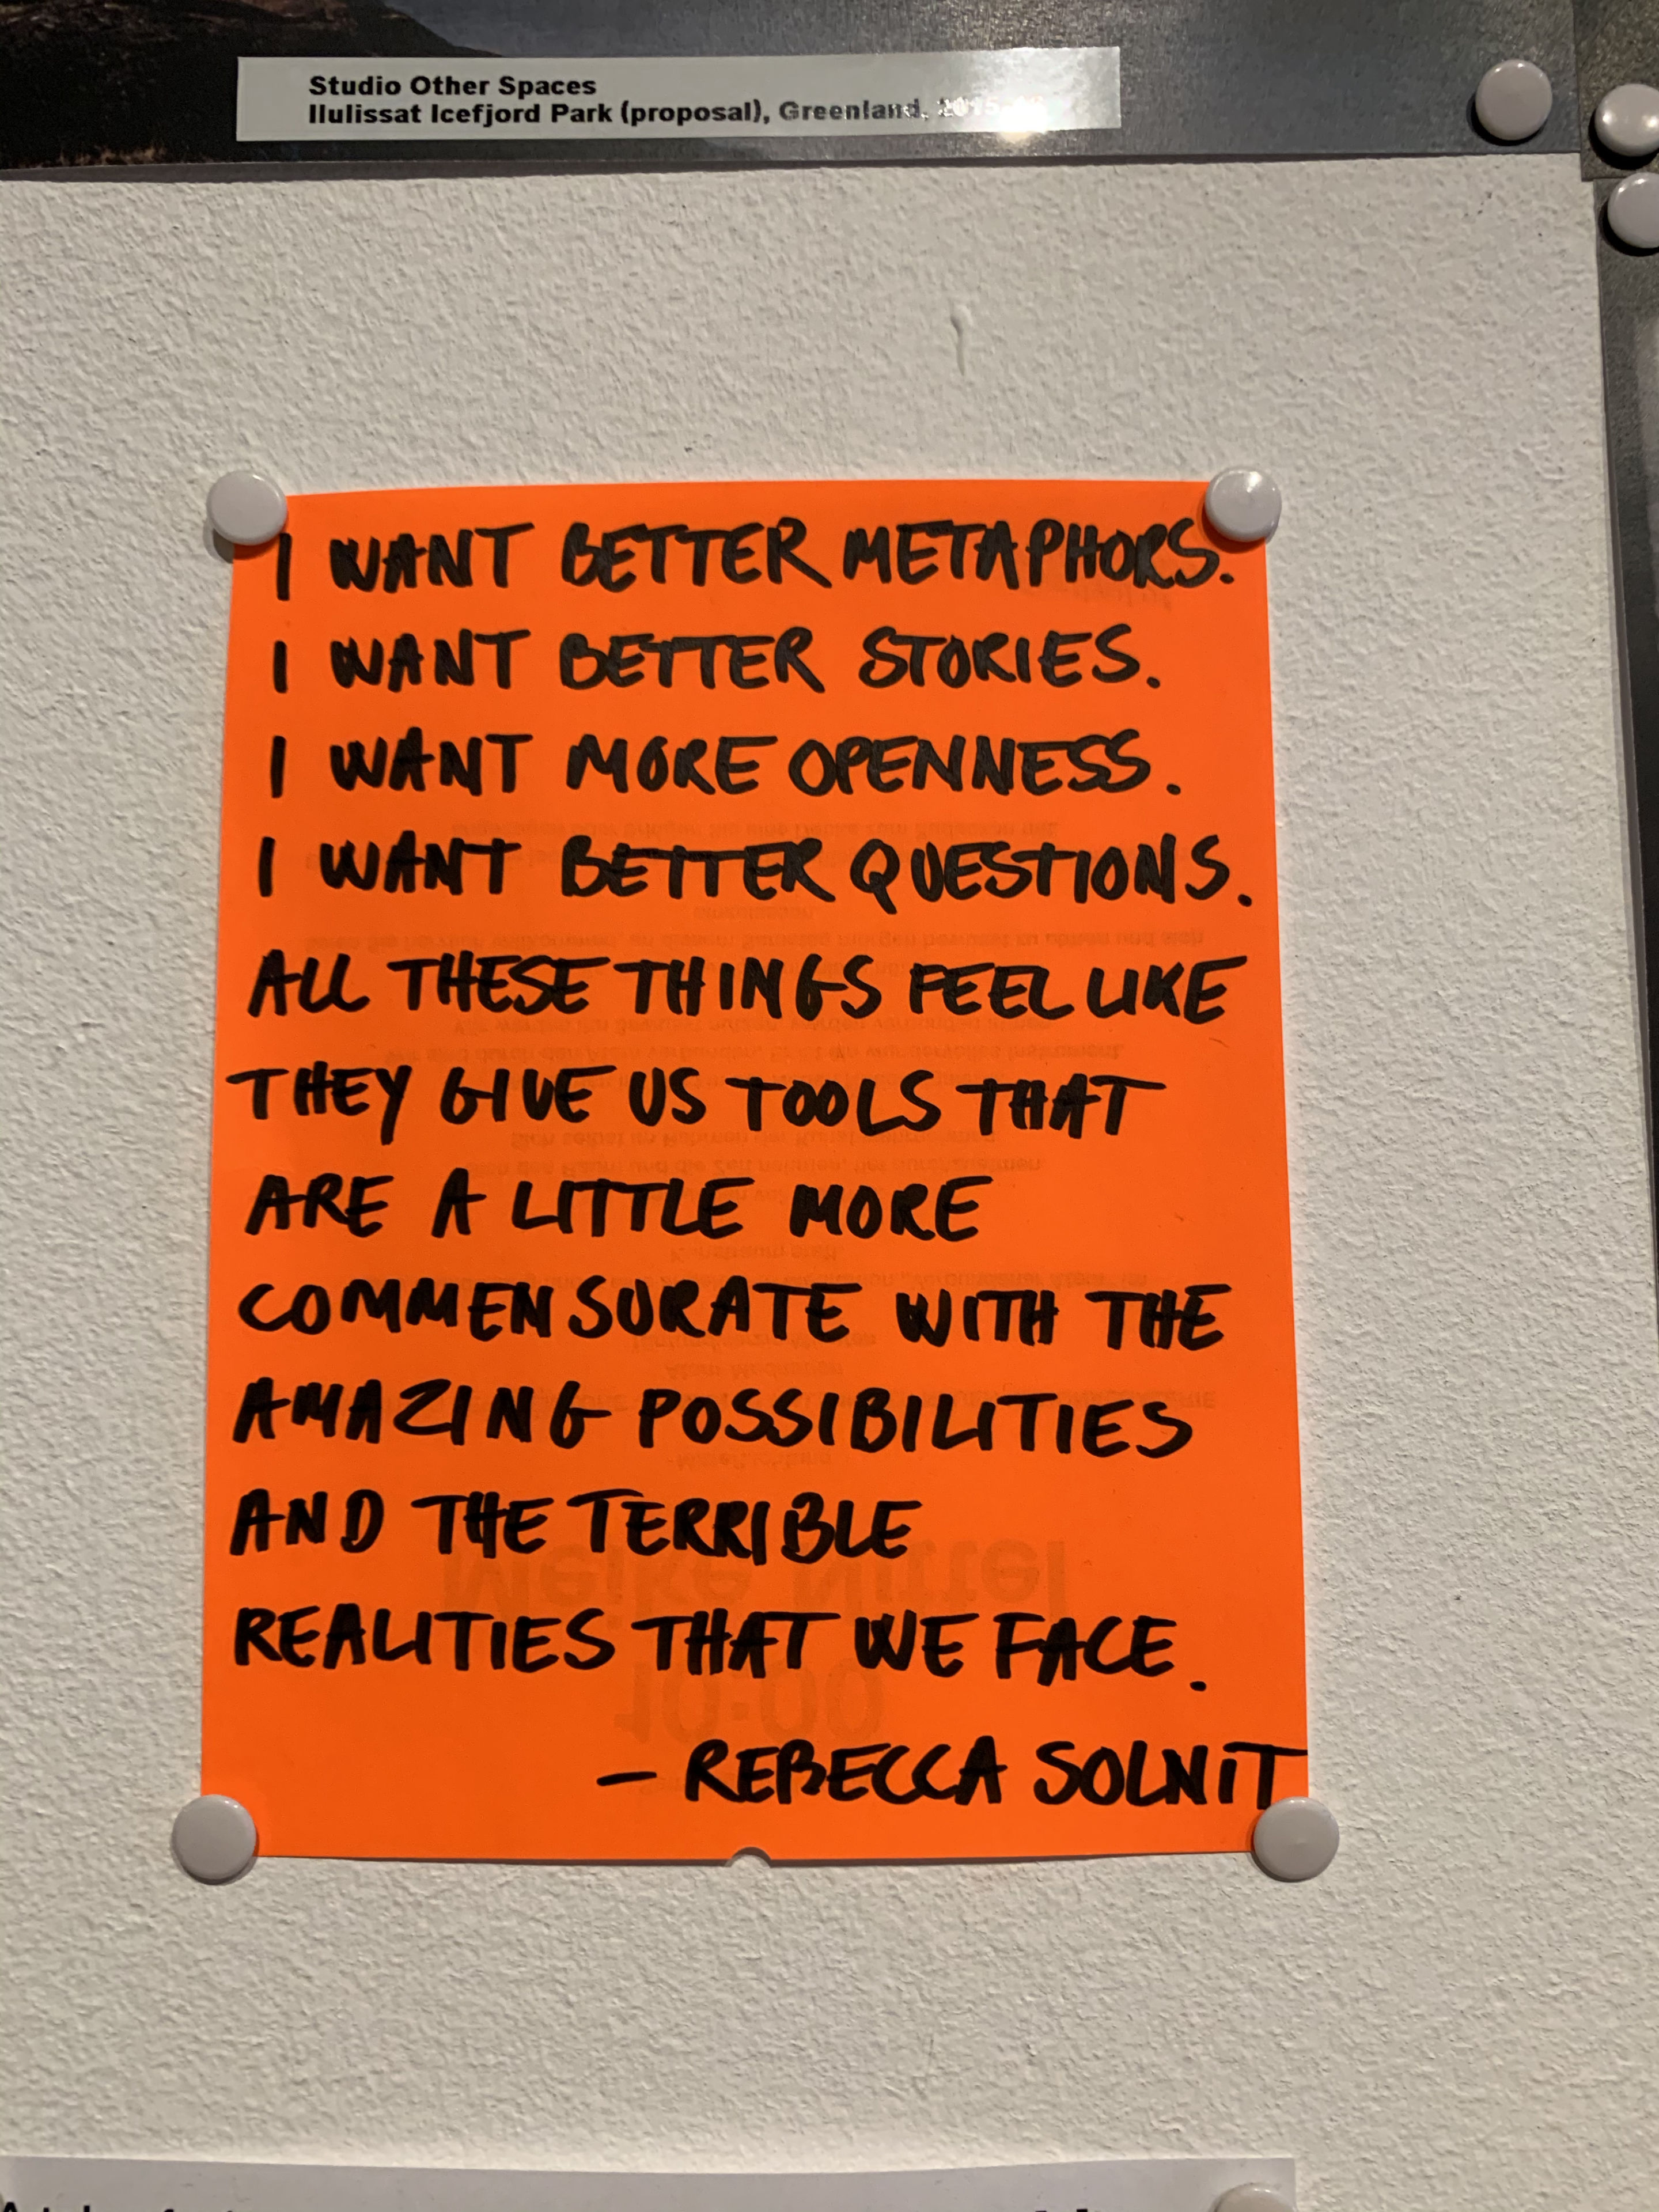 Studio Other Spaces
Ilulissat Icefjord Park (proposal), Greenland,
I WANT BETTER METAPHORS.
I WANT BETTER STORIES.
I WANT MORE OPENNESS.
I WANT BETTER QUESTIONS.
ALL THESE THINGS FEEL LIKE
THEY GIVE US TOOLS THAT
ARE A LITTLE MORE
COMMENSURATE WITH THE
AMAZING POSSIBILITIES
AND THE TERRIBLE
REALITIES THAT WE FACE.
— REBECCA SOLNIT